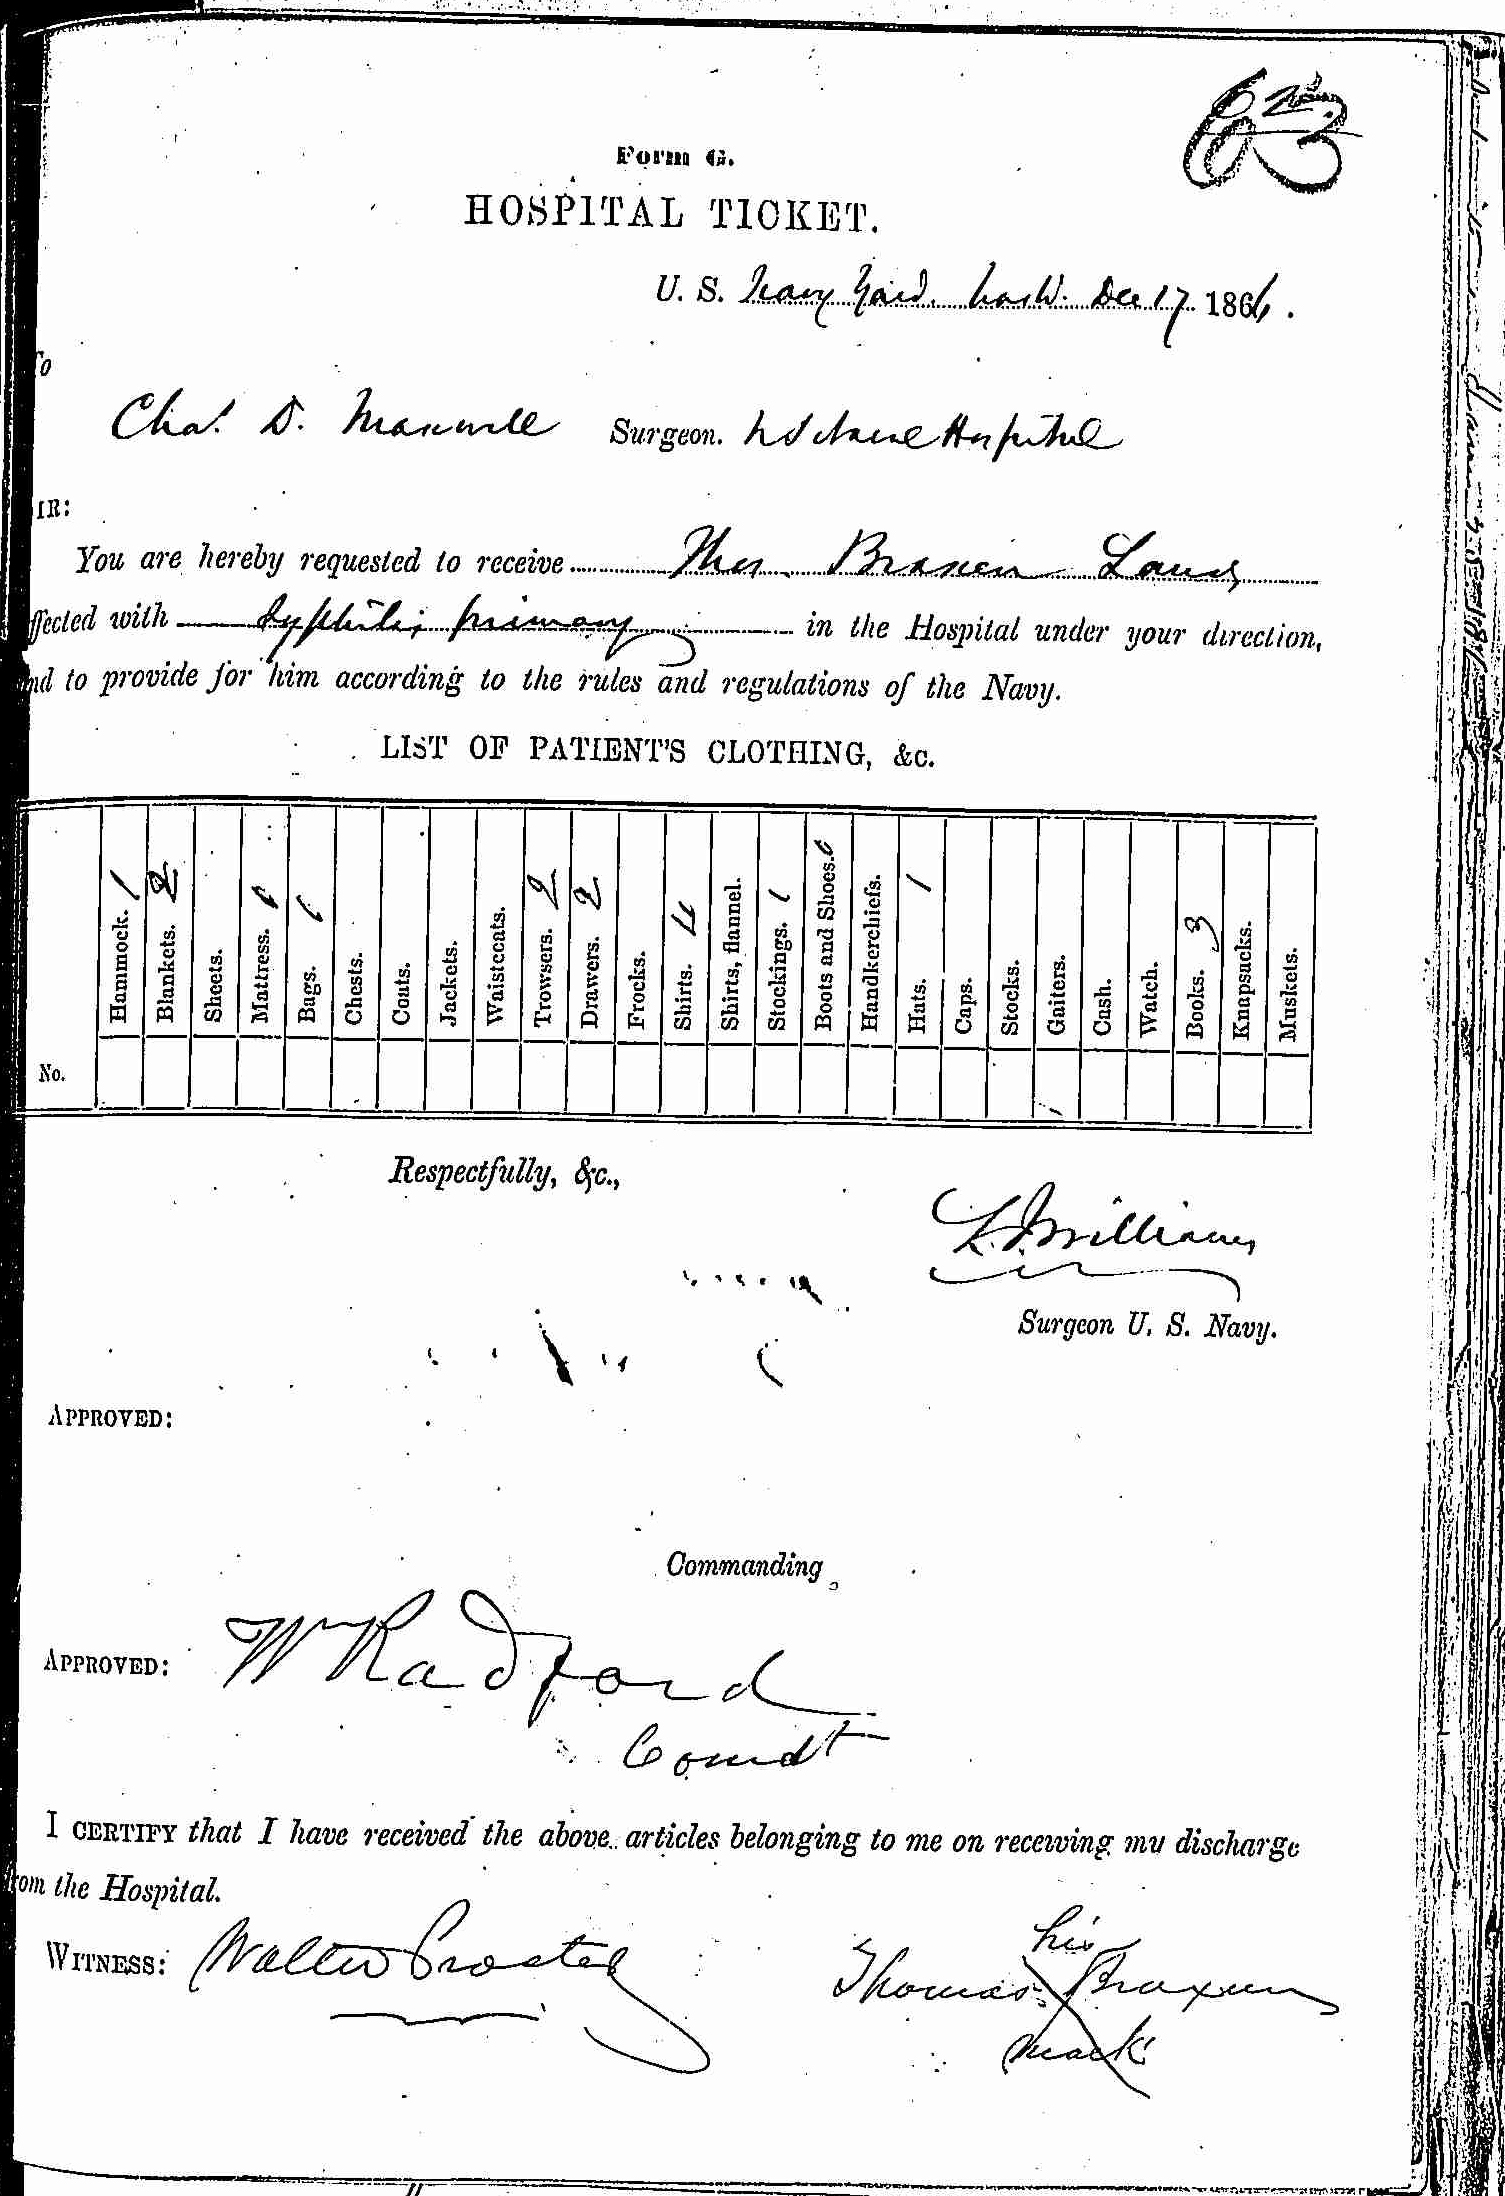 63
Form G.
HOSPITAL TICKET.
U. S. Navy Yard. Wash. Dec 17 1866.
To
Chas. D. Maxwell Surgeon. U S Naval Hospital
SIR:
You are hereby requested to receive Thos. Braxen Lands
affected with Syphilis primary in the Hospital under your direction,
and to provide for him according to the rules and regulations of the Navy.
LIST OF PATIENT'S CLOTHING, &c.
No. Hammock. 1 Blankets. 2 Sheets. Mattress. 1 Bags. 1 Chests. Coats. Jackets. Waistcoats. Trowsers. 2 Drawers. 2 Frocks. Shirts. 4 Shirts, flannel. Stockings. 1 Boots and Shoes. Handkerchiefs. Hats. 1 Caps. Stocks. Gaiters. Cash. Watch. Books. 3 Knapsacks. Muskets.
Respectfully, &c.,
Williams
Surgeon U. S. Navy.
APPROVED:
Commanding
APPROVED: W Radford
Comdt
I CERTIFY that I have received the above articles belonging to me on receiving my discharge
from the Hospital.
his
WITNESS: Walter Thomas X Braxen
mark